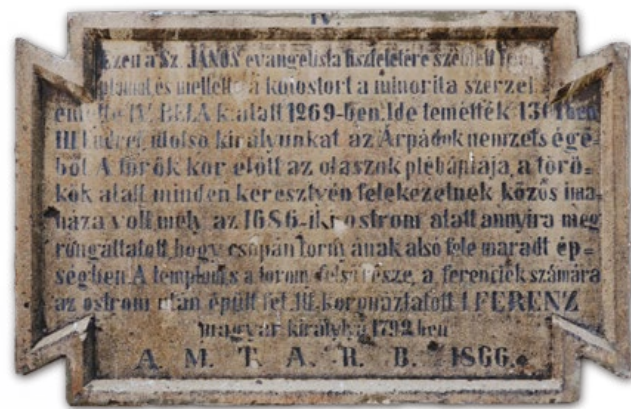 IV.
Ezen a Sz. JÁNOS evangelista tiszteletére szentelt
templomot és mellette a kolostort a minorita szerzet
emelte IV. BELA k. alatt 1269-ben. Ide temették 1301ben
III Endre utolso királyunkat az Árpádok nemzetségé=
ből. A török kor elött az olaszok plébániája, a törö=
kök alatt minden keresztvén felekezetnek közös ima=
háza volt mely az 1686-iki ostrom alatt annyira meg
rongáltatott, hogy csupán tornyának alsó fele maradt ép=
ségben. A templom s a torony felső része, a ferenciek számára
az ostrom után épült fel. Itt koronáztatott I FERENZ
magyar királlyá 1792 ben
A. M. T. A. R. B. 1866.